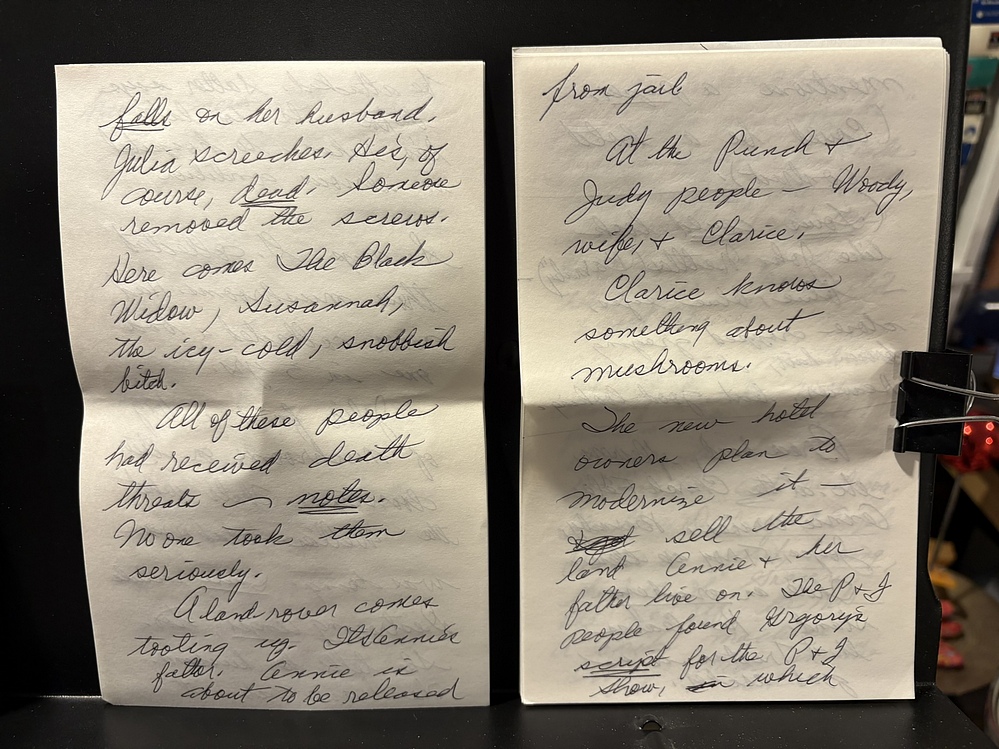 falls on her husband.
Julia screeches. He's, of
course, dead. Someone
removed the screws.
Here comes The Black
Widow, Susannah,
the icy-cold, snobbish
bitch.
All of these people
had received death
threats — notes.
No one took them
seriously.
A land-rover comes
tooting up. It's Annie's
father. Annie is
about to be released
from jail
At the Punch +
Judy people — Woody,
wife, + Clarice.
Clarice knows
something about
mushrooms.
The new hotel
owners plan to
modernize it —
sell the
land Annie + her
father live on. The P + J
people found Grgory's
script for the P + J
show, in which